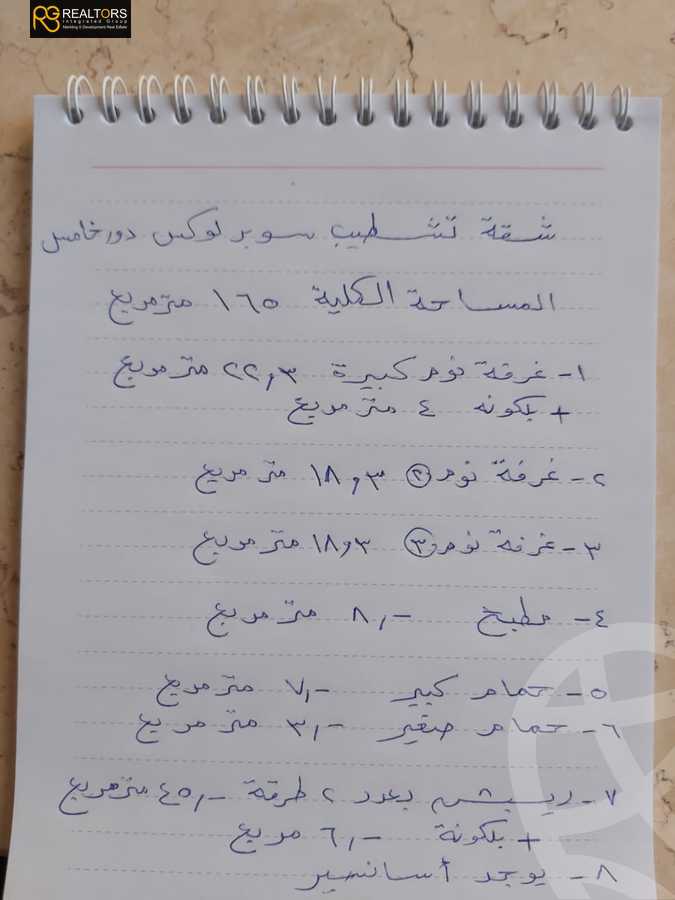 RG REALTORS
Integrated Group
Marketing & Development Real Estate
شقة تشطيب سوبر لوكس دور خامس
المساحة الكلية ١٦٥ متر مربع
١- غرفة نوم كبيرة ٢٢,٣ متر مربع
+ بلكونه ٤ متر مربع
٢- غرفة نوم ② ١٨,٣ متر مربع
٣- غرفة نوم ③ ١٨,٣ متر مربع
٤- مطبخ ٨,- متر مربع
٥- حمام كبير ٧,- متر مربع
٦- حمام صغير ٣,- متر مربع
٧- ريسبشن بعدد ٢ طرقة ٤٥,- متر مربع
+ بلكونة ٦,- مربع
٨- يوجد أسانسير